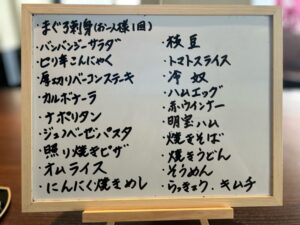 ・まぐろ刺身(お一人様1回)
・バンバンジーサラダ
・ピリ辛こんにゃく
・厚切りベーコンステーキ
・カルボナーラ
・ナポリタン
・ジェノベーゼパスタ
・照り焼きピザ
・オムライス
・にんにく焼きめし
・枝豆
・トマトスライス
・冷奴
・ハムエッグ
・赤ウインナー
・明宝ハム
・焼きそば
・焼きうどん
・そうめん
・らっきょう、キムチ